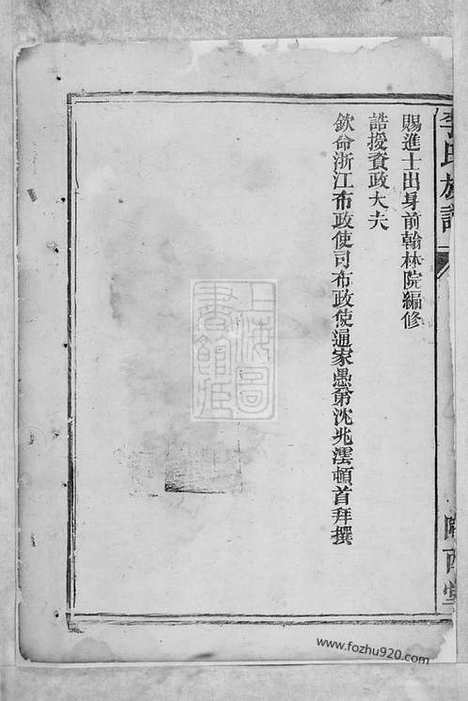 李氏族譜
賜進士出身前翰林院編修
誥授資政大夫
欽命浙江布政使司布政使通家愚弟沈兆澐頓首拜撰
隴西堂
上海圖書館藏
www.fozhu920.com